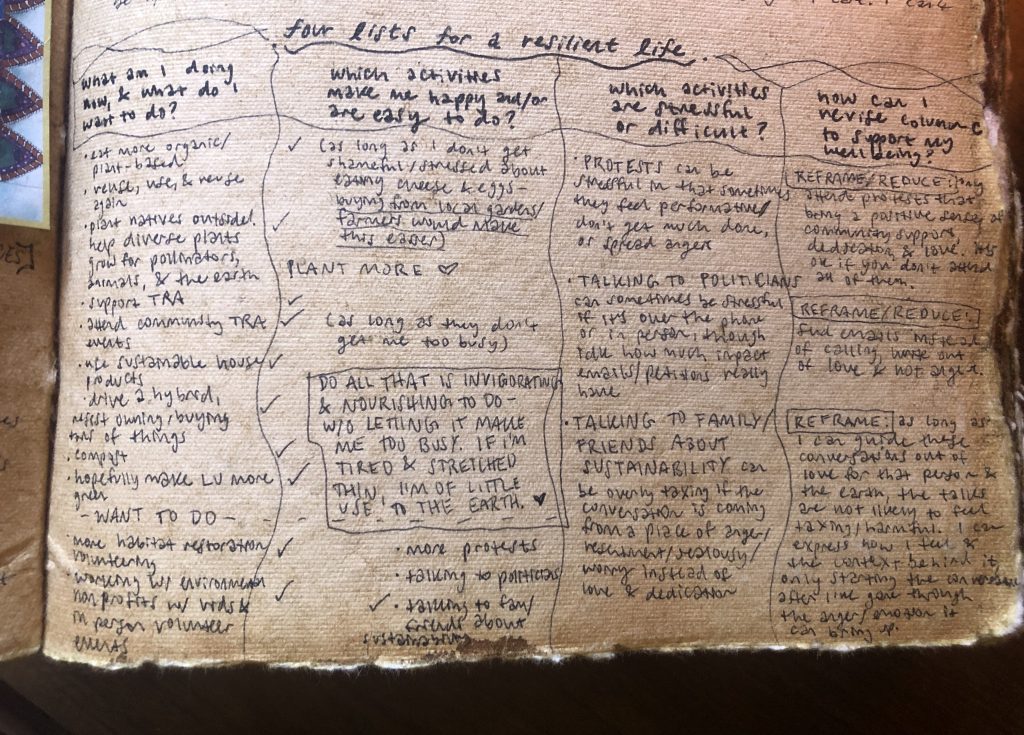 four lists for a resilient life.
what am I doing
now, & what do I
want to do?
• eat more organic/
plant-based
• reuse, use, & reuse
again
• plant natives outside!
help diverse plants
grow for pollinators,
animals, & the earth
• support TRA
• attend community TRA
events
• use sustainable house
products
• drive a hybrid,
resist owning/buying
tons of things
• compost
• hopefully make LU more
green
- WANT TO DO -
more habitat restoration
volunteering
• working w/ environmental
non profits w/ vids &
in person volunteer
events
which activities
make me happy and/or
are easy to do?
✓ (as long as I don't get
shameful/stressed about
eating cheese & eggs-
buying from local gardens/
✓ farmers would make
this easier)
PLANT MORE ♡
✓
✓ (as long as they don't
get me too busy)
✓
DO ALL THAT IS INVIGORATING
& NOURISHING TO DO -
✓ W/O LETTING IT MAKE
ME TOO BUSY. IF I'M
✓ TIRED & STRETCHED
✓ THIN, I'M OF LITTLE
USE TO THE EARTH. ♥
✓ • more protests
• talking to politicians
✓
✓ • talking to fam/
friends about
sustainability
which activities
are stressful
or difficult?
• PROTESTS can be
stressful in that sometimes
they feel performative/
don't get much done,
or spread anger
• TALKING TO POLITICIANS
can sometimes be stressful
if it's over the phone
or in person, though
idk how much impact
emails/petitions really
have
• TALKING TO FAMILY/
FRIENDS ABOUT
SUSTAINABILITY can
be overly taxing if the
conversation is coming
from a place of anger/
resentment/jealousy/
worry instead of
love & dedication
how can I
revise column C
to support my
wellbeing?
REFRAME/REDUCE: only
attend protests that
bring a positive sense of
community support,
dedication, & love. it's
ok if you don't attend
all of them.
REFRAME/REDUCE:
send emails instead
of calling, work out
of love & not anger.
REFRAME: as long as
I can guide these
conversations out of
love for that person &
the earth, the talks
are not likely to feel
taxing/harmful. I can
express how I feel &
the context behind it,
only starting the conversation
after I've gone through
the anger/emotion it
can bring up.